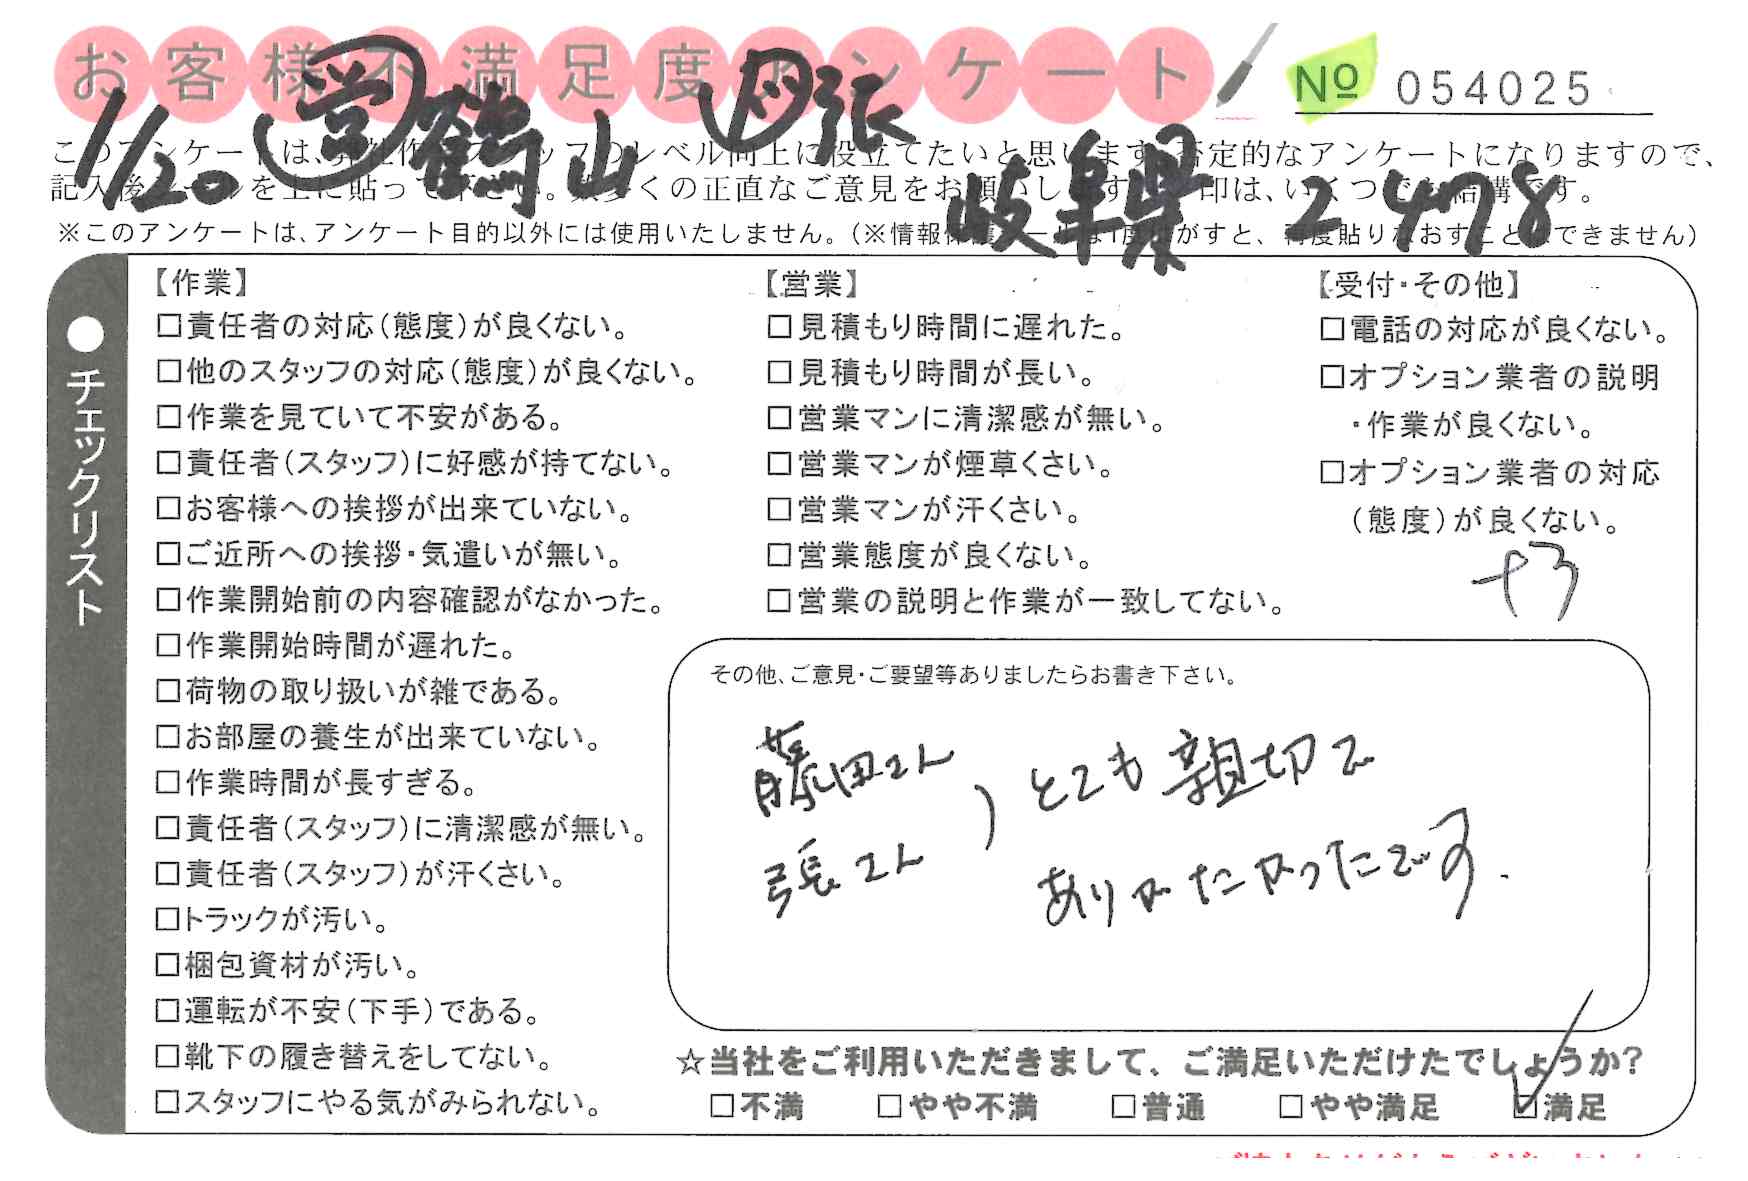 お客様不満足度アンケート
№ 054025
1/20 営 鶴山 ド 張
岐阜県 2478
このアンケートは、弊社作業スタッフのレベル向上に役立てたいと思います。否定的なアンケートになりますので、
記入後シールを上に貼って下さい。数多くの正直なご意見をお願いします。 印は、いくつでも結構です。
※このアンケートは、アンケート目的以外には使用いたしません。(※情報保護シールは1度はがすと、再度貼りなおすことはできません)
●チェックリスト
【作業】
□責任者の対応(態度)が良くない。
□他のスタッフの対応(態度)が良くない。
□作業を見ていて不安がある。
□責任者(スタッフ)に好感が持てない。
□お客様への挨拶が出来ていない。
□ご近所への挨拶・気遣いが無い。
□作業開始前の内容確認がなかった。
□作業開始時間が遅れた。
□荷物の取り扱いが雑である。
□お部屋の養生が出来ていない。
□作業時間が長すぎる。
□責任者(スタッフ)に清潔感が無い。
□責任者(スタッフ)が汗くさい。
□トラックが汚い。
□梱包資材が汚い。
□運転が不安(下手)である。
□靴下の履き替えをしてない。
□スタッフにやる気がみられない。
【営業】
□見積もり時間に遅れた。
□見積もり時間が長い。
□営業マンに清潔感が無い。
□営業マンが煙草くさい。
□営業マンが汗くさい。
□営業態度が良くない。
□営業の説明と作業が一致してない。
【受付・その他】
□電話の対応が良くない。
□オプション業者の説明
・作業が良くない。
□オプション業者の対応
(態度)が良くない。
+3
その他、ご意見・ご要望等ありましたらお書き下さい。
藤田さん
張さん
とても親切で
ありがたかったです.
☆当社をご利用いただきまして、ご満足いただけたでしょうか?
□不満 □やや不満 □普通 □やや満足 ☑満足